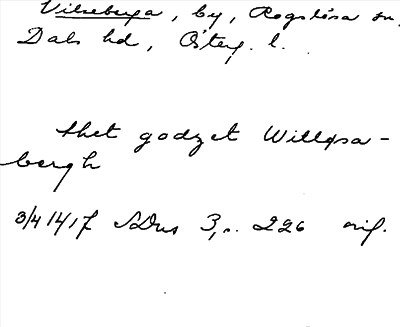 Vilseberga, by, Rogslösa sn,
Dals hd, Österg. l.
thet godzet Willqsa-
bergh
3/4 1417 SDns 3, s. 226 orig.